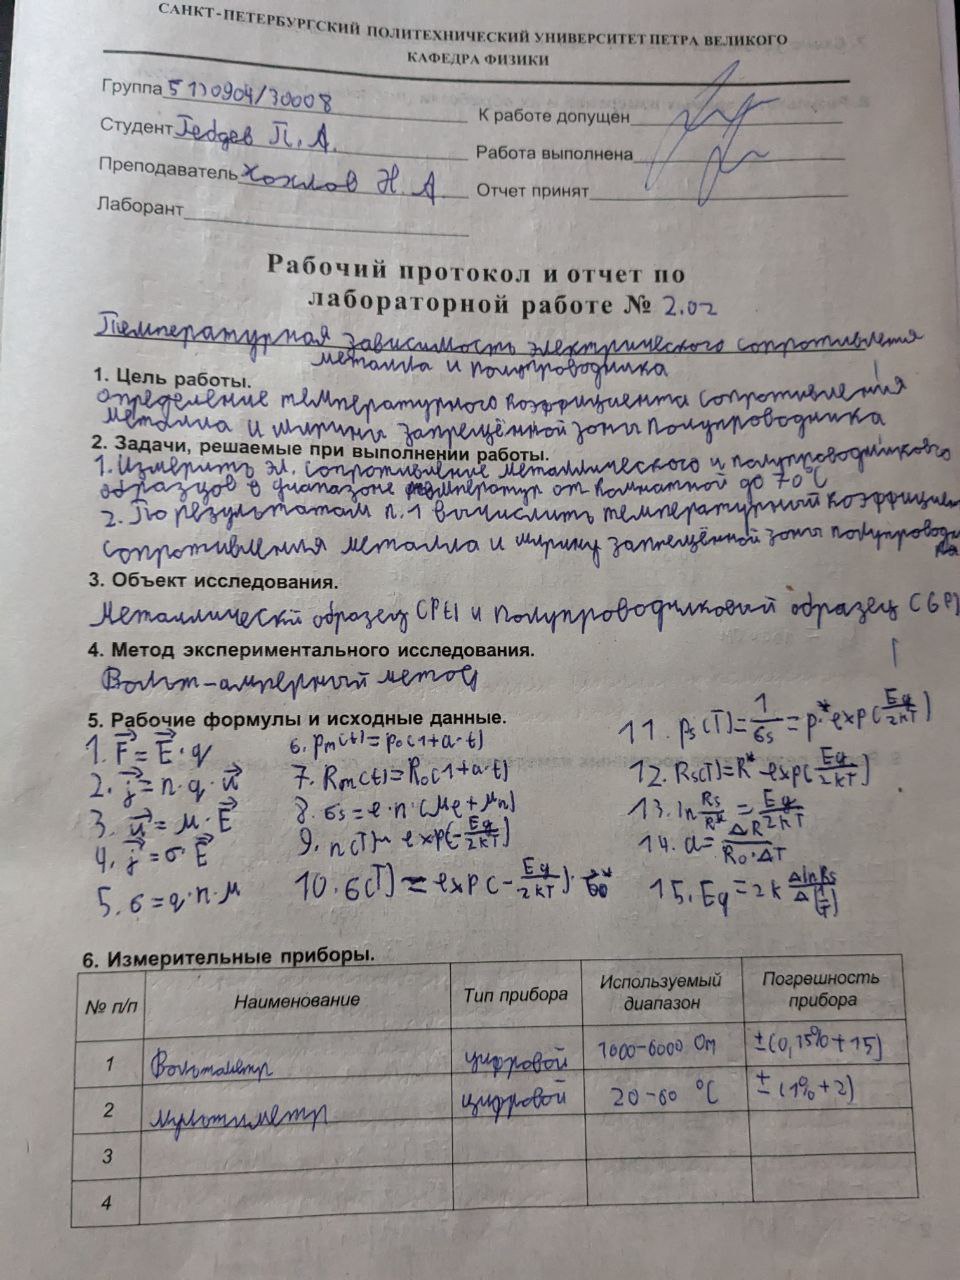 САНКТ-ПЕТЕРБУРГСКИЙ ПОЛИТЕХНИЧЕСКИЙ УНИВЕРСИТЕТ ПЕТРА ВЕЛИКОГО
КАФЕДРА ФИЗИКИ
Группа 5130904/30008
К работе допущен
Студент П.А.
Работа выполнена
Преподаватель Хохлов Н.А.
Отчет принят
Лаборант
Рабочий протокол и отчет по
лабораторной работе № 2.02
Температурная зависимость электрического сопротивления
металла и полупроводника
1. Цель работы.
определение температурного коэффициента сопротивления
металла и ширины запрещённой зоны полупроводника
2. Задачи, решаемые при выполнении работы.
1. Измерить эл. сопротивление металлического и полупроводникового
образцов в диапазоне температур от комнатной до 70°C
2. По результатам п.1 вычислить температурный коэффициен
сопротивления металла и ширину запрещённой зоны полупроводни
ка
3. Объект исследования.
Металлический образец и полупроводниковый образец
4. Метод экспериментального исследования.
Вольт-амперный метод
5. Рабочие формулы и исходные данные.
1. F⃗ = E⃗·q
2. j⃗ = n·q·u⃗
3. u⃗ = μ·E⃗
4. j⃗ = σ·E⃗
5. σ = q·n·μ
6. ρm(t) = ρ0(1+α·t)
7. Rm(t) = R0(1+α·t)
8. σs = e·n·(μe + μn)
9. n(T) ~ exp(-Eg/2kT)
10. σ(T) = exp(-Eg/2kT)·σ*
11. ρs(T) = 1/σs = ρ*·exp(Eg/2kT)
12. Rs(T) = R*·exp(Eg/2kT)
13. ln Rs/R* = Eg/2kT
14. α = ΔR/R0·ΔT
15. Eg = 2k ΔlnRs/Δ(1/T)
6. Измерительные приборы.
№ п/п Наименование Тип прибора Используемый диапазон Погрешность прибора
1 Вольтметр цифровой 1000-6000 Ом ±(0,15%+15)
2 мультиметр цифровой 20-60 °C ±(1%+2)
3
4